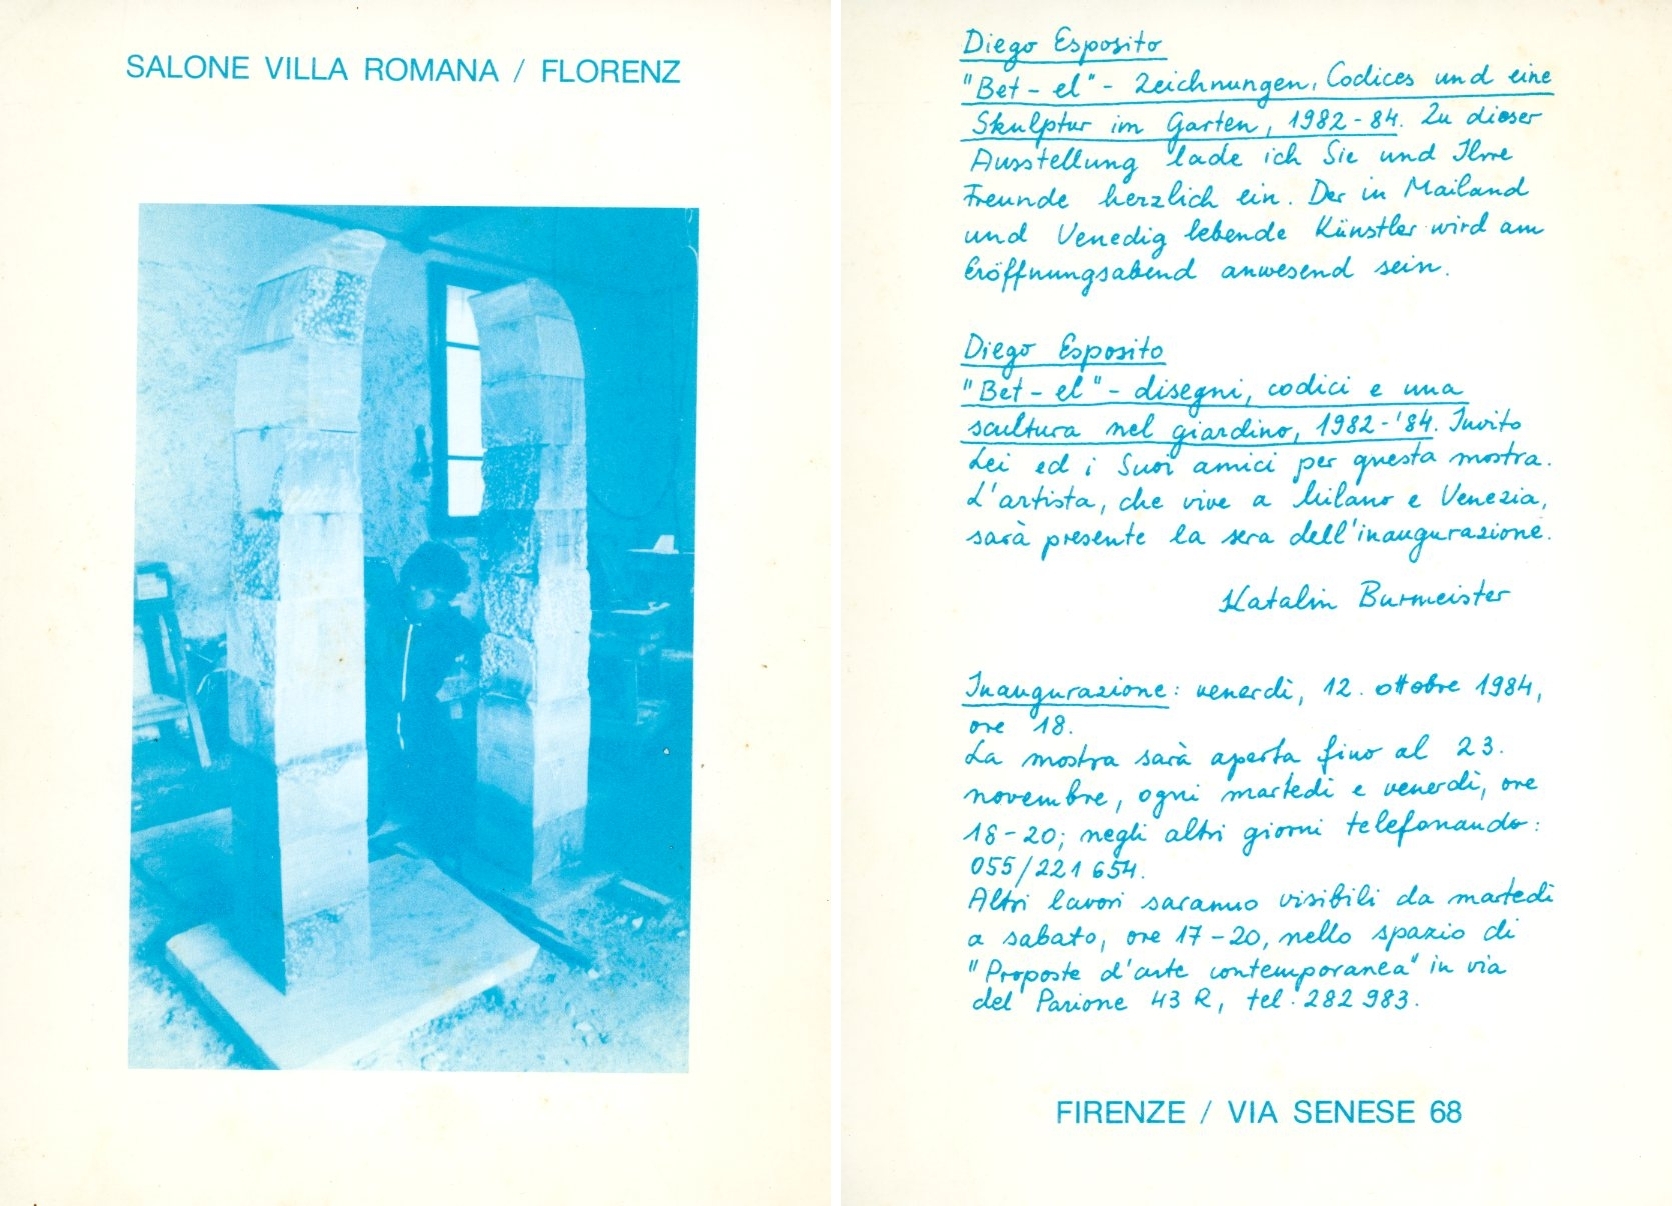 SALONE VILLA ROMANA / FLORENZ
Diego Esposito
"Bet - el" - Zeichnungen, Codices und eine
Skulptur im Garten, 1982 - 84. Zu dieser
Ausstellung lade ich Sie und Ihre
Freunde herzlich ein. Der in Mailand
und Venedig lebende Künstler wird am
Eröffnungsabend anwesend sein.
Diego Esposito
"Bet - el" - disegni, codici e una
scultura nel giardino, 1982 - '84. Invito
Lei ed i Suoi amici per questa mostra.
L'artista, che vive a Milano e Venezia,
sarà presente la sera dell'inaugurazione.
Katalin Burmeister
Inaugurazione: venerdì, 12. ottobre 1984,
ore 18.
La mostra sarà aperta fino al 23.
novembre, ogni martedì e venerdì, ore
18 - 20; negli altri giorni telefonando:
055/221 654.
Altri lavori saranno visibili da martedì
a sabato, ore 17 - 20, nello spazio di
"Proposte d'arte contemporanea" in via
del Parione 43 R, tel. 282 983.
FIRENZE / VIA SENESE 68